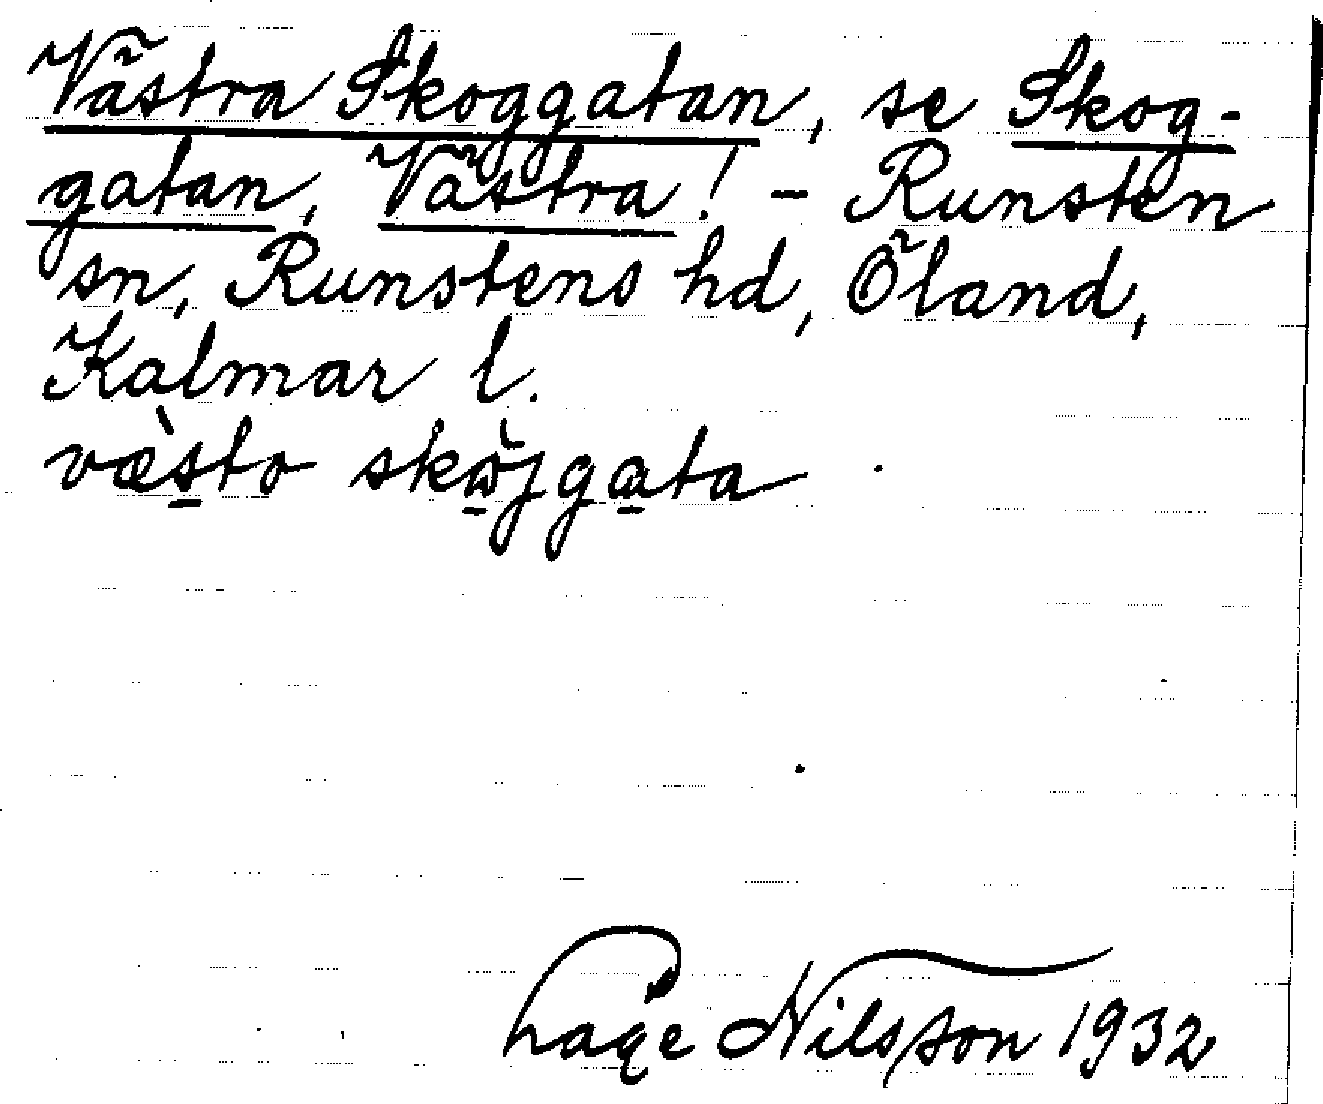 Västra Skoggatan, se Skog-
gatan, Västra! - Runsten
sn, Runstens hd, Öland,
Kalmar l.
væ̀sto skὼjgata
Nilsson 1932